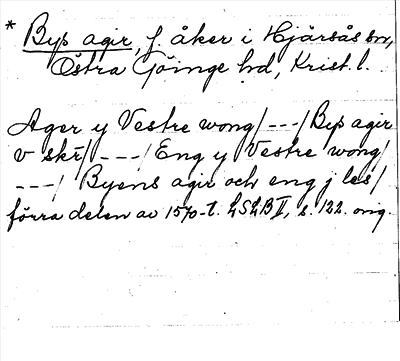 * Bys agir, f. åker i Hjärsås sn,
Östra Göinge hd, Krist. l.
Ager y Vestre wong/---/Bys agir
v skr/---/Eng y Vestre wong/
---/ Byens agir och eng j les/
förra delen av 1570-t. LSLB II, s. 122. orig.